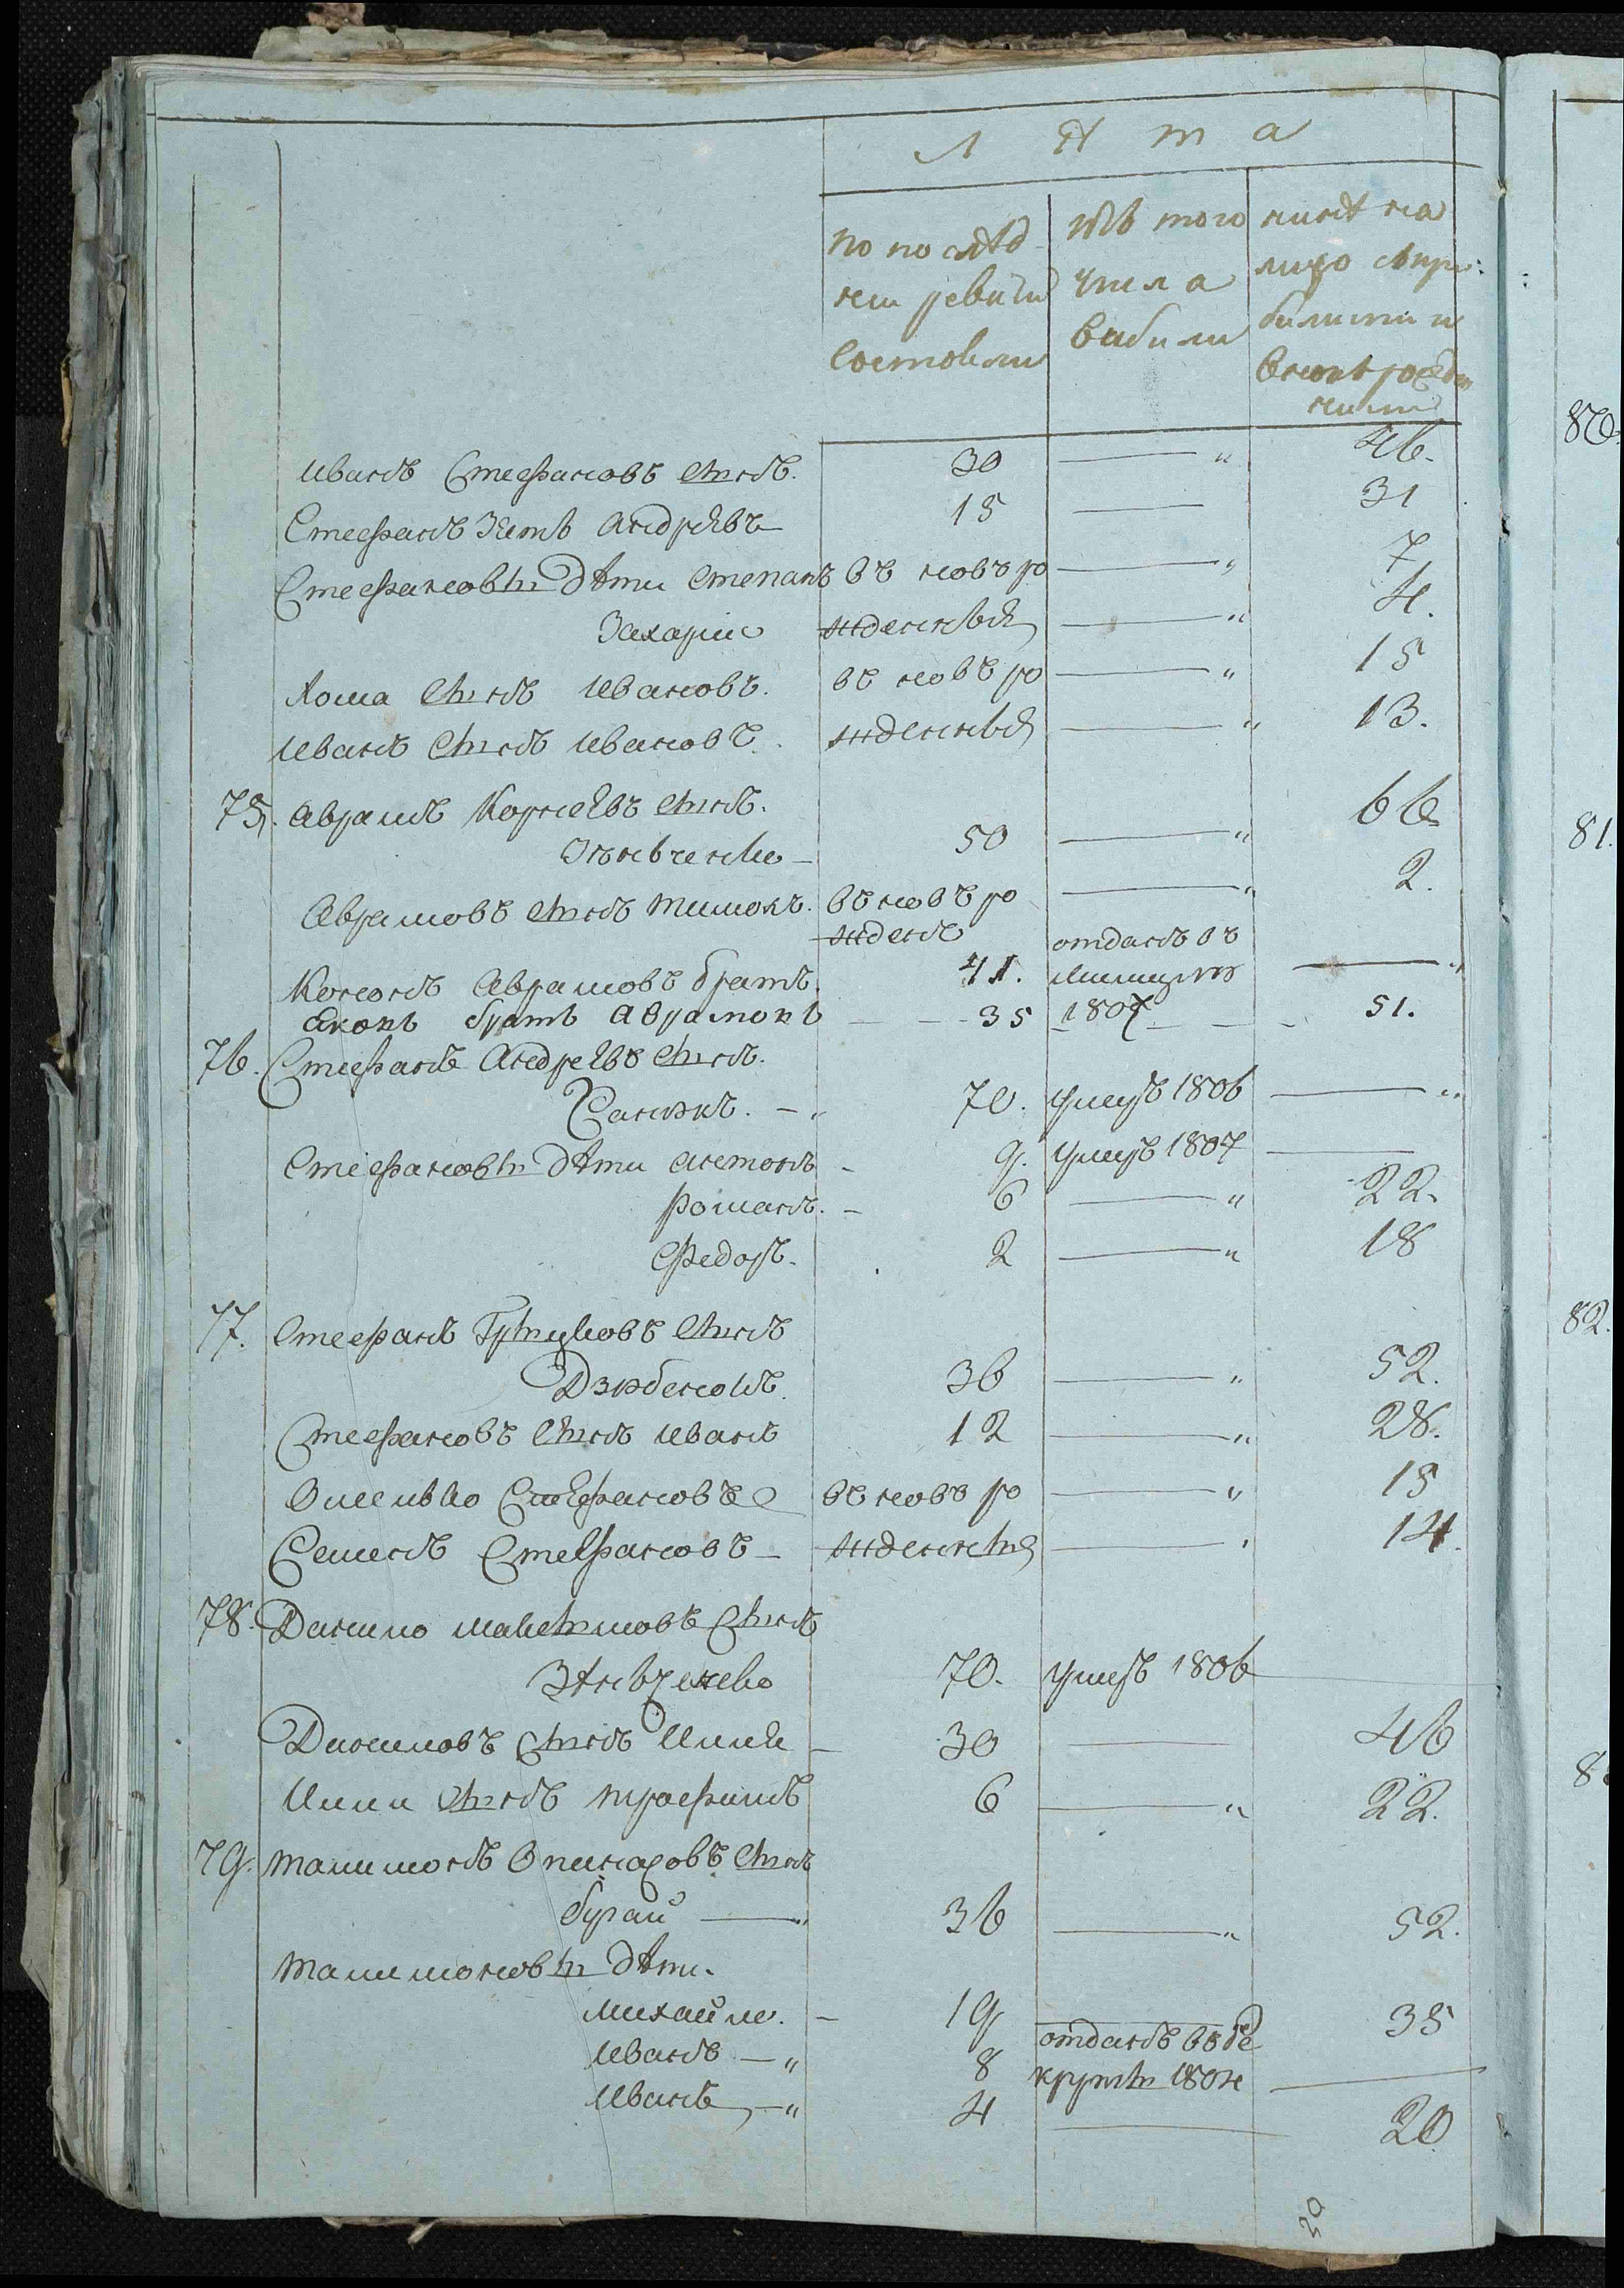 Лѣта
по послѣд
неи ревизи
Состояли
изъ того
числа
выбили
нинѣ на
лицо с при
билими и
вновь рожден
ними
Иванъ Стефановъ сынъ. 30 — " 46.
Стефанъ зять Андрѣевъ 15 — 31
Стефановы дѣти Степанъ въ новъ ро — " 7
Захарий жденныя — " 4.
Хома сынъ Ивановъ. въ новъ ро — " 15
Иванъ сынъ Ивановъ. жденныя — " 13.
75. Аврамъ Корнѣевъ сынъ.
50 — " 66
Аврамовъ сынъ Тимохъ. въ новъ ро — " 2.
жденъ отданъ въ
Кононъ Аврамовъ братъ. 41. милицию — "
Яковъ братъ Аврамовъ — 35 1807 — 51.
76. Стефанъ Андреевъ сынъ.
70. умеръ 1806 — "
Стефановы дѣти Антонъ — 9. умеръ 1807 —
Романъ. — 6 — " 22.
Федоръ. 2 — " 18
77. Стефанъ Грыцковъ сынъ
36 — " 52.
Стефановъ сынъ Иванъ 12 — " 28.
Стефановъ въ новъ ро — " 15
Семенъ Стефановъ — жденныя — 14.
78. Данило сынъ
70. умеръ 1806
Даниловъ сынъ — 30 — 46
сынъ Трофимъ 6 — " 22.
79. сынъ
бугай — " 36 — " 52.
дѣти.
Михайло. — 19 — 35
отданъ въ ре
Иванъ — " 8 круты 1804 —
Иванъ — " 4 — 20
30
80.
81.
82.
8